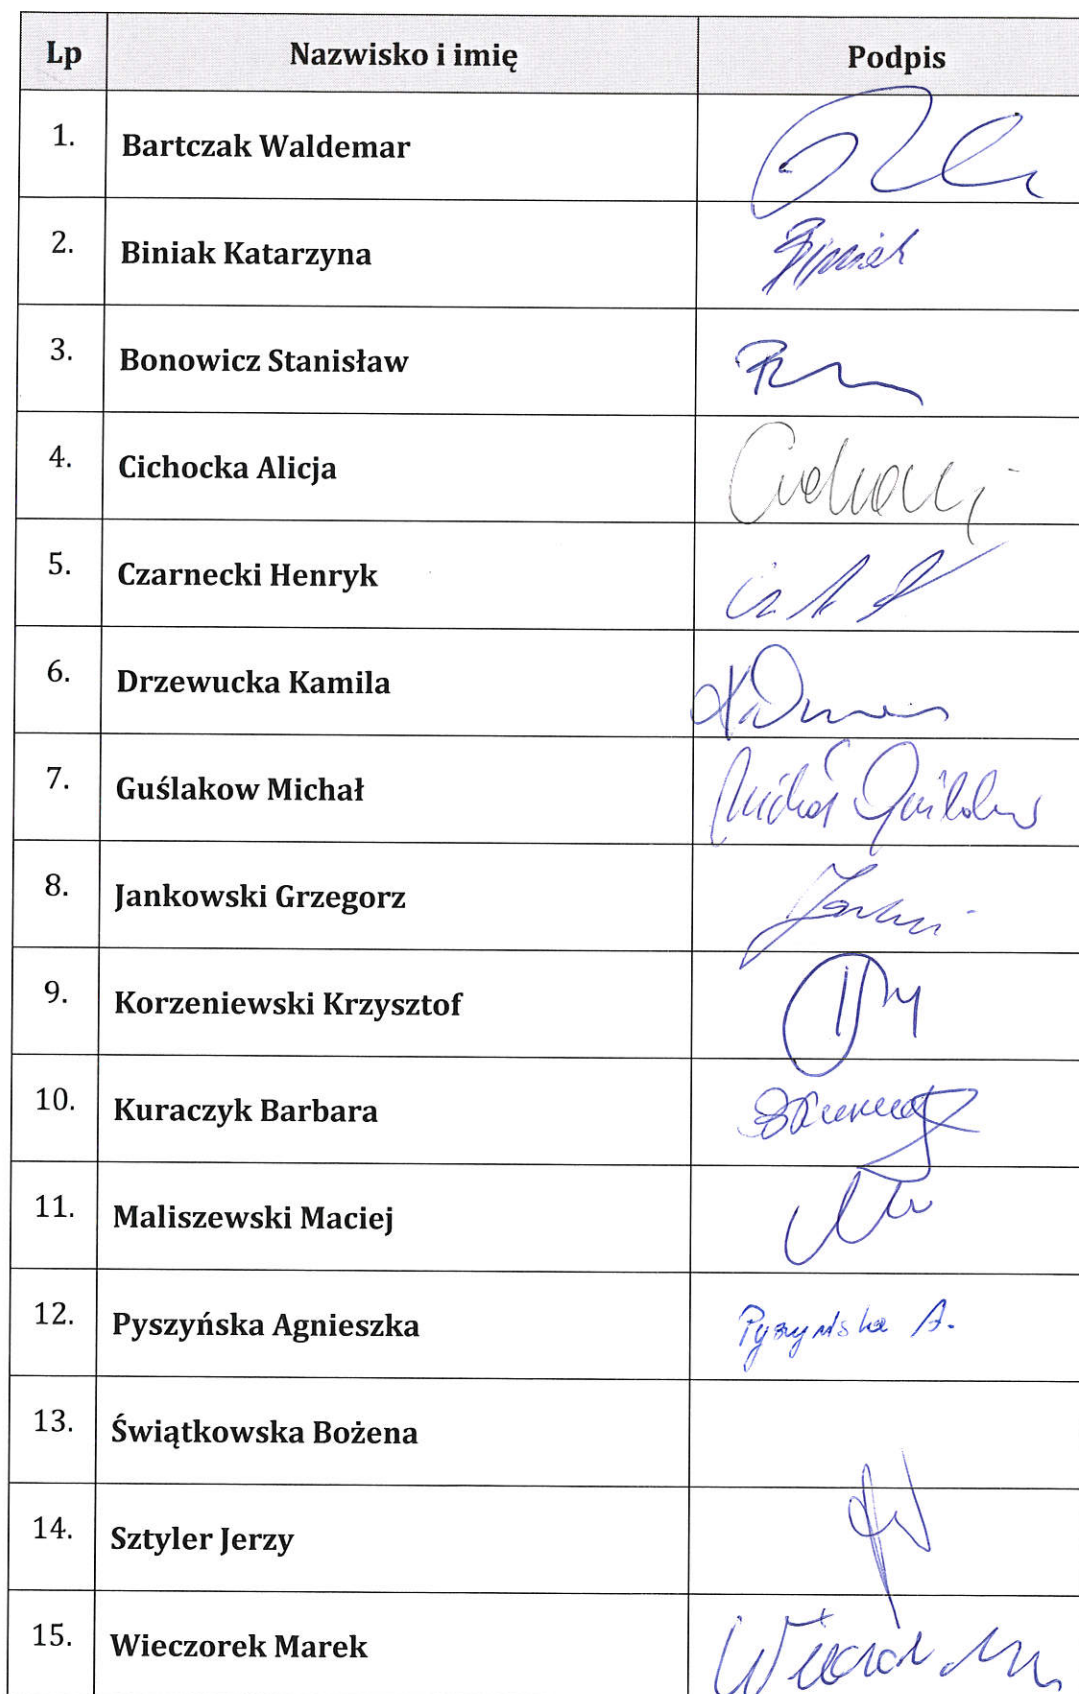 Lp Nazwisko i imię Podpis
1. Bartczak Waldemar
2. Biniak Katarzyna
3. Bonowicz Stanisław
4. Cichocka Alicja
5. Czarnecki Henryk
6. Drzewucka Kamila
7. Guślakow Michał
8. Jankowski Grzegorz
9. Korzeniewski Krzysztof
10. Kuraczyk Barbara
11. Maliszewski Maciej
12. Pyszyńska Agnieszka Pyszyńska A.
13. Świątkowska Bożena
14. Sztyler Jerzy
15. Wieczorek Marek